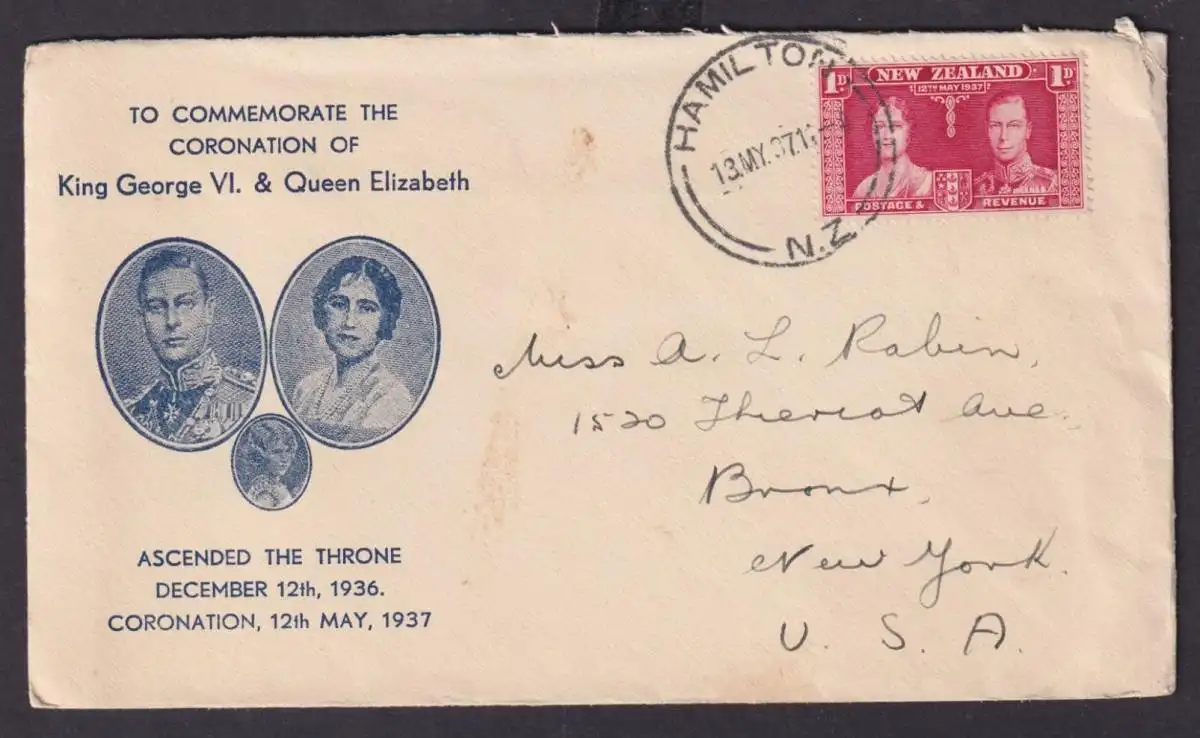 TO COMMEMORATE THE
CORONATION OF
King George VI. & Queen Elizabeth
ASCENDED THE THRONE
DECEMBER 12th, 1936.
CORONATION, 12th MAY, 1937
HAMILTON
13 MY. 37
N.Z.
1D NEW ZEALAND 1D
12TH MAY 1937
POSTAGE & REVENUE
Miss A. L. Rabin,
1520 Theriot Ave.
Bronx,
New York.
U. S. A.